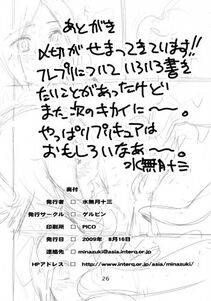 あとがき
〆切がせまってきています!!
フレプリについていろいろ書き
たいことがあったけど
また次のキカイに〜。
やっぱりプリキュアは
おもしろいなあ〜。
水無月十三
奥付
発行者 水無月十三
発行サークル ゲルピン
印刷所 PICO
発行日 2009年 8月16日
連絡先 minazuki@asia.interq.or.jp
HPアドレス http://www.interq.or.jp/asia/minazuki/
26